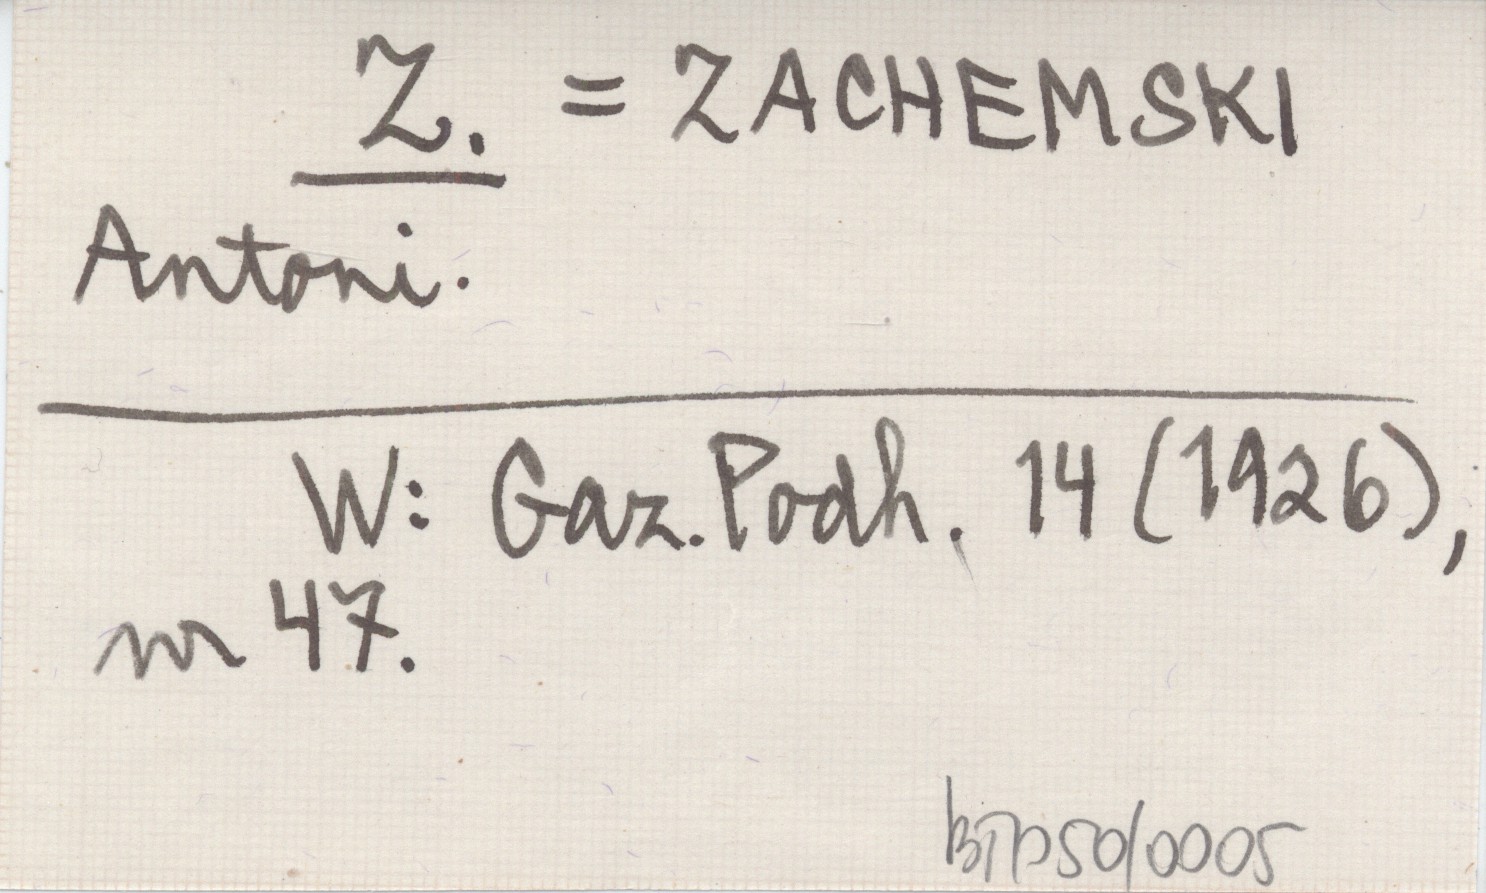 Z. = ZACHEMSKI
Antoni.
W: Gaz. Podh. 14 (1926),
nr 47.
bTP50/0005